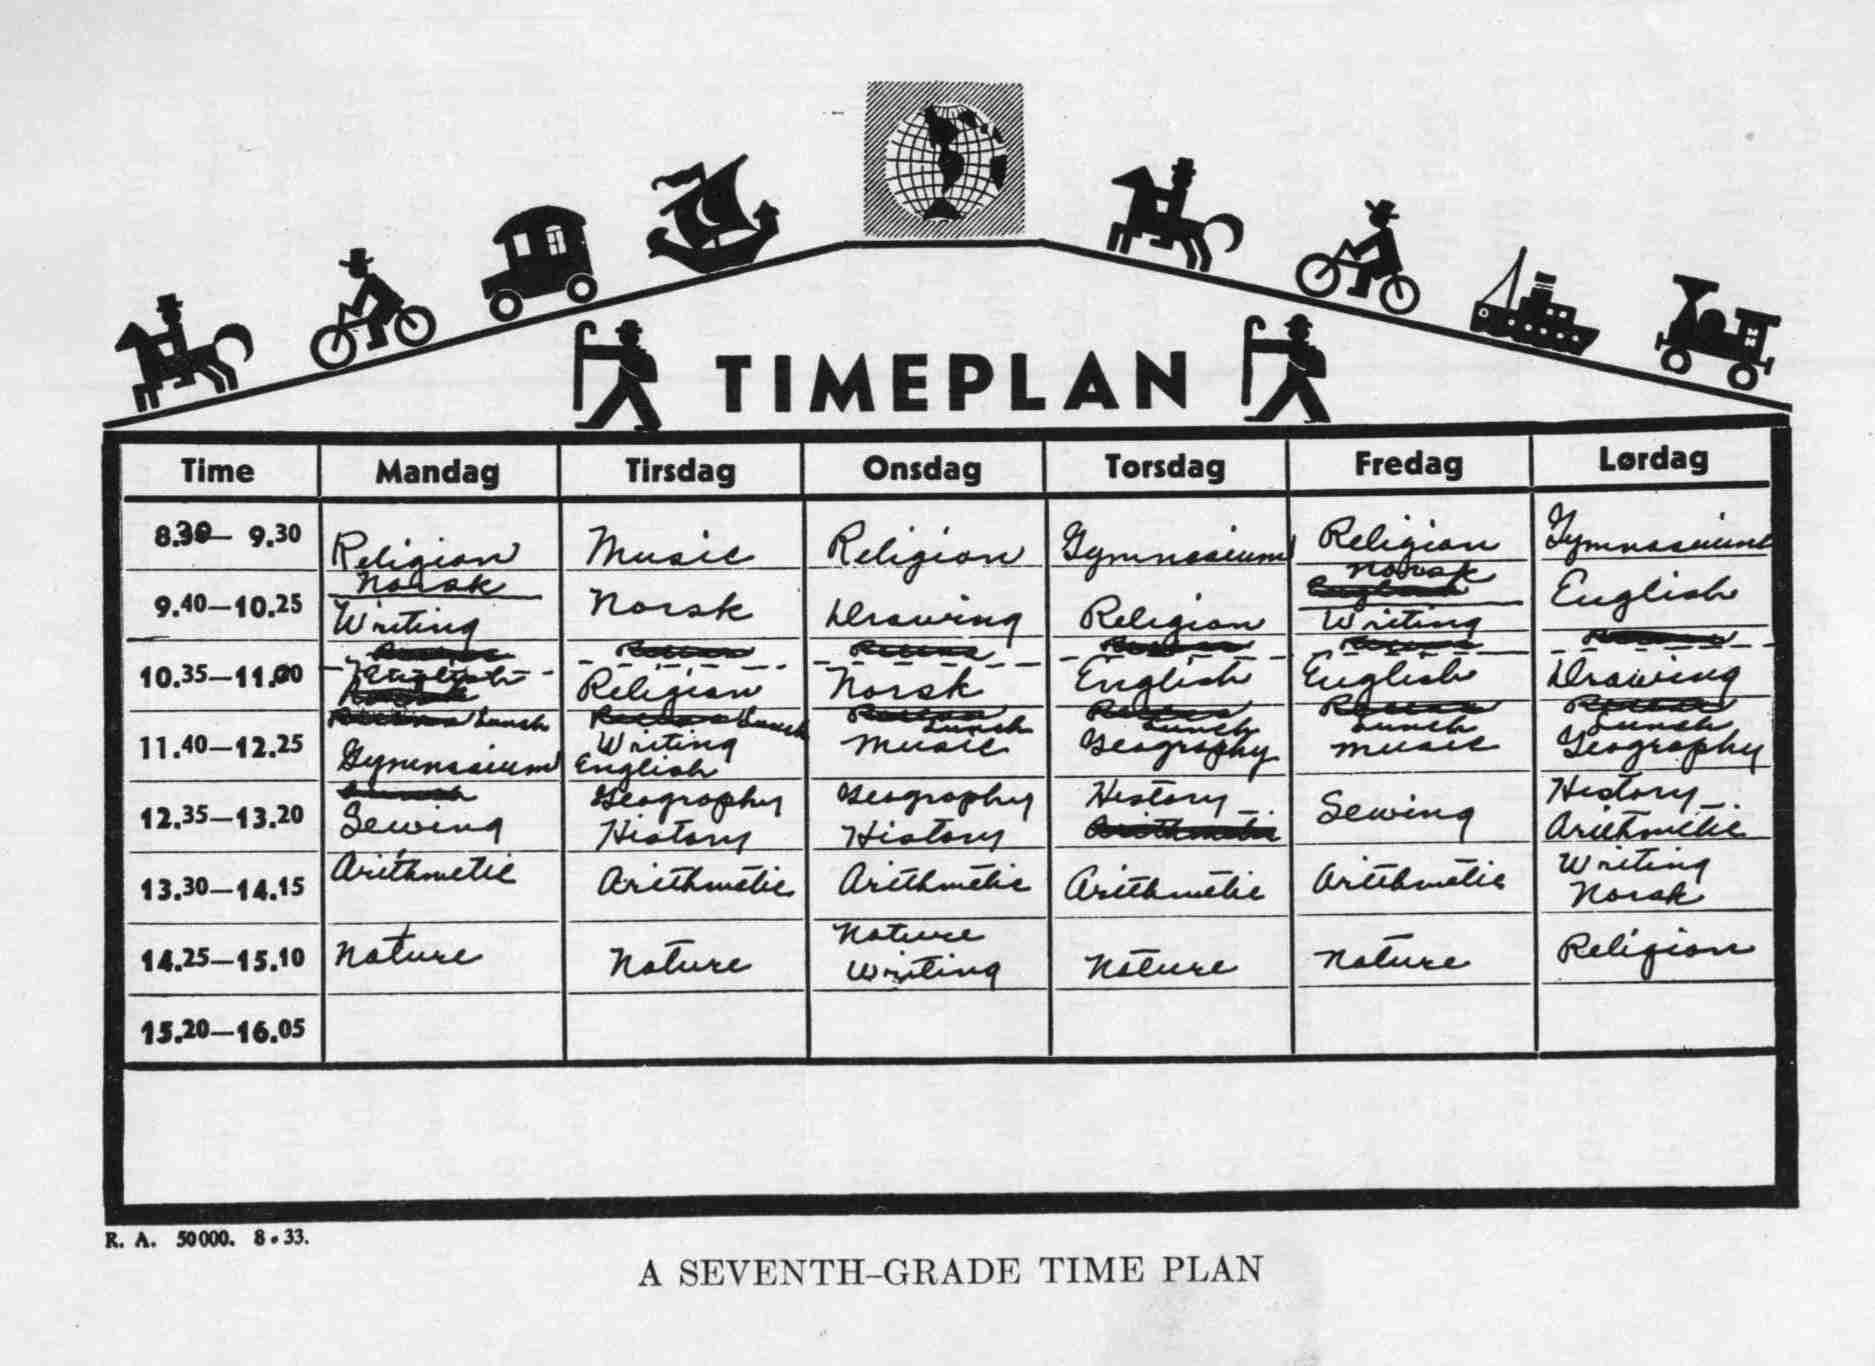 TIMEPLAN
Time Mandag Tirsdag Onsdag Torsdag Fredag Lørdag
8.30– 9.30 Religion Music Religion Gymnasium Religion Gymnasium
9.40–10.25 Norsk Writing Norsk Drawing Religion Norsk Writing English
10.35–11.00 English Religion Norsk English English Drawing
11.40–12.25 Lunch Gymnasium Lunch Writing English Lunch Music Lunch Geography Lunch Music Lunch Geography
12.35–13.20 Sewing Geography History Geography History History Sewing History Arithmetic
13.30–14.15 Arithmetic Arithmetic Arithmetic Arithmetic Arithmetic Writing Norsk
14.25–15.10 Nature Nature Nature Writing Nature Nature Religion
15.20–16.05
R. A. 50000. 8.33.
A SEVENTH–GRADE TIME PLAN